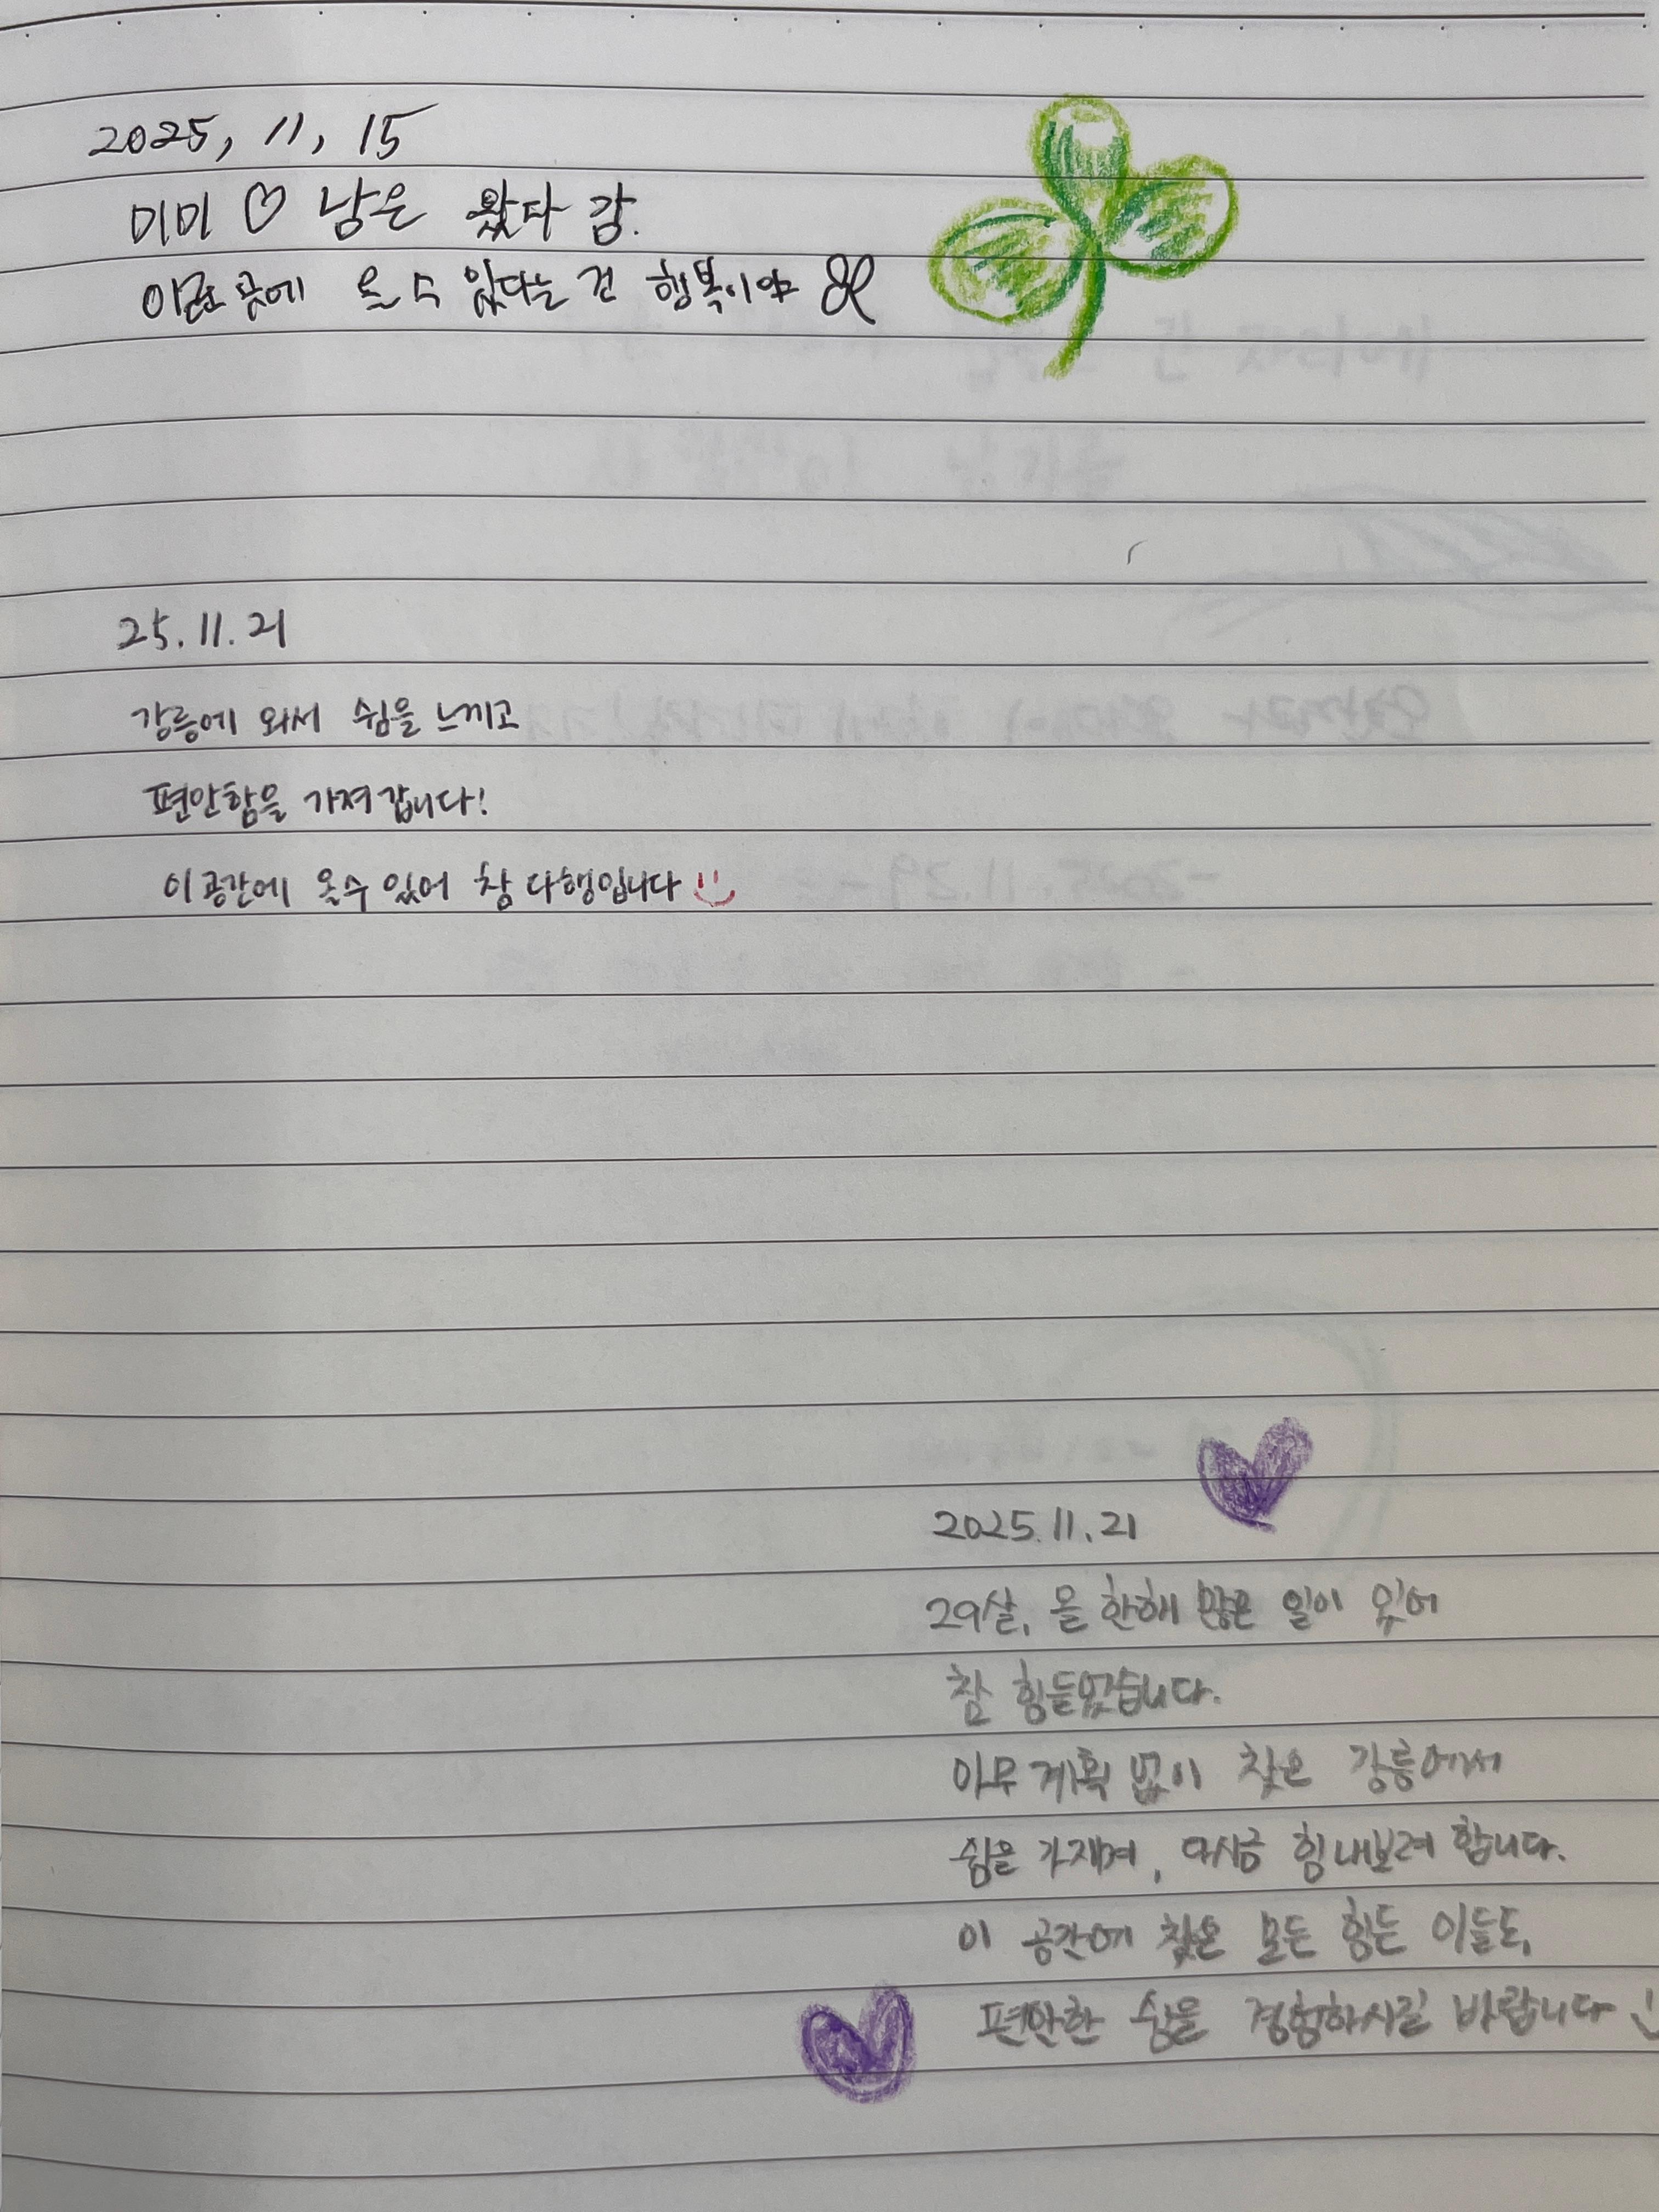 2025, 11, 15
미미 ♡ 남은 왔다 감.
이런 곳에 올 수 있다는 건 행복이야
25.11.21
강릉에 와서 쉼을 느끼고
편안함을 가져갑니다!
이 공간에 올수 있어 참 다행입니다
2025.11.21
29살, 올 한해 많은 일이 있어
참 힘들었습니다.
아무 계획 없이 찾은 강릉에서
쉼을 가지며, 다시금 힘내보려 합니다.
이 공간에 찾은 모든 힘든 이들도,
편안한 쉼을 경험하시길 바랍니다